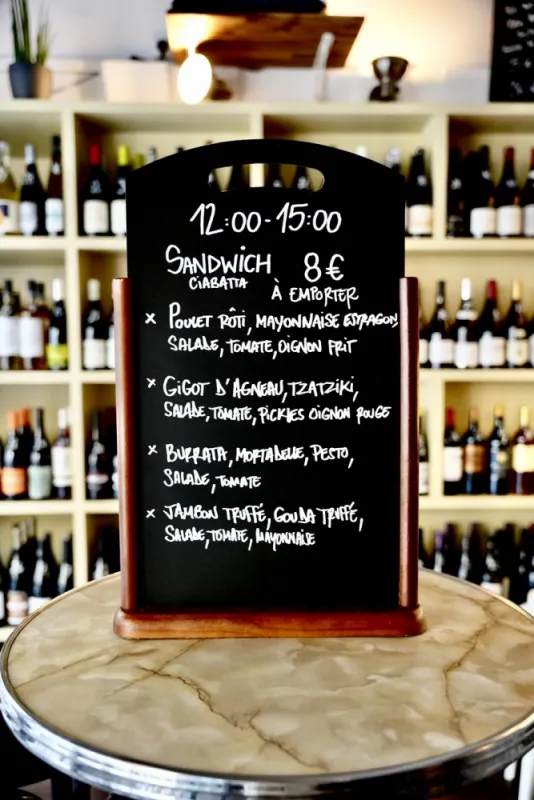 12:00-15:00
SANDWICH 8€
CIABATTA
À EMPORTER
x POULET RÔTI, MAYONNAISE ESTRAGON
SALADE, TOMATE, OIGNON FRIT
x GIGOT D'AGNEAU, TZATZIKI,
SALADE, TOMATE, PICKLES OIGNON ROUGE
x BURRATA, MORTADELLE, PESTO,
SALADE, TOMATE
x JAMBON TRUFFÉ, GOUDA TRUFFÉ,
SALADE, TOMATE, MAYONNAISE